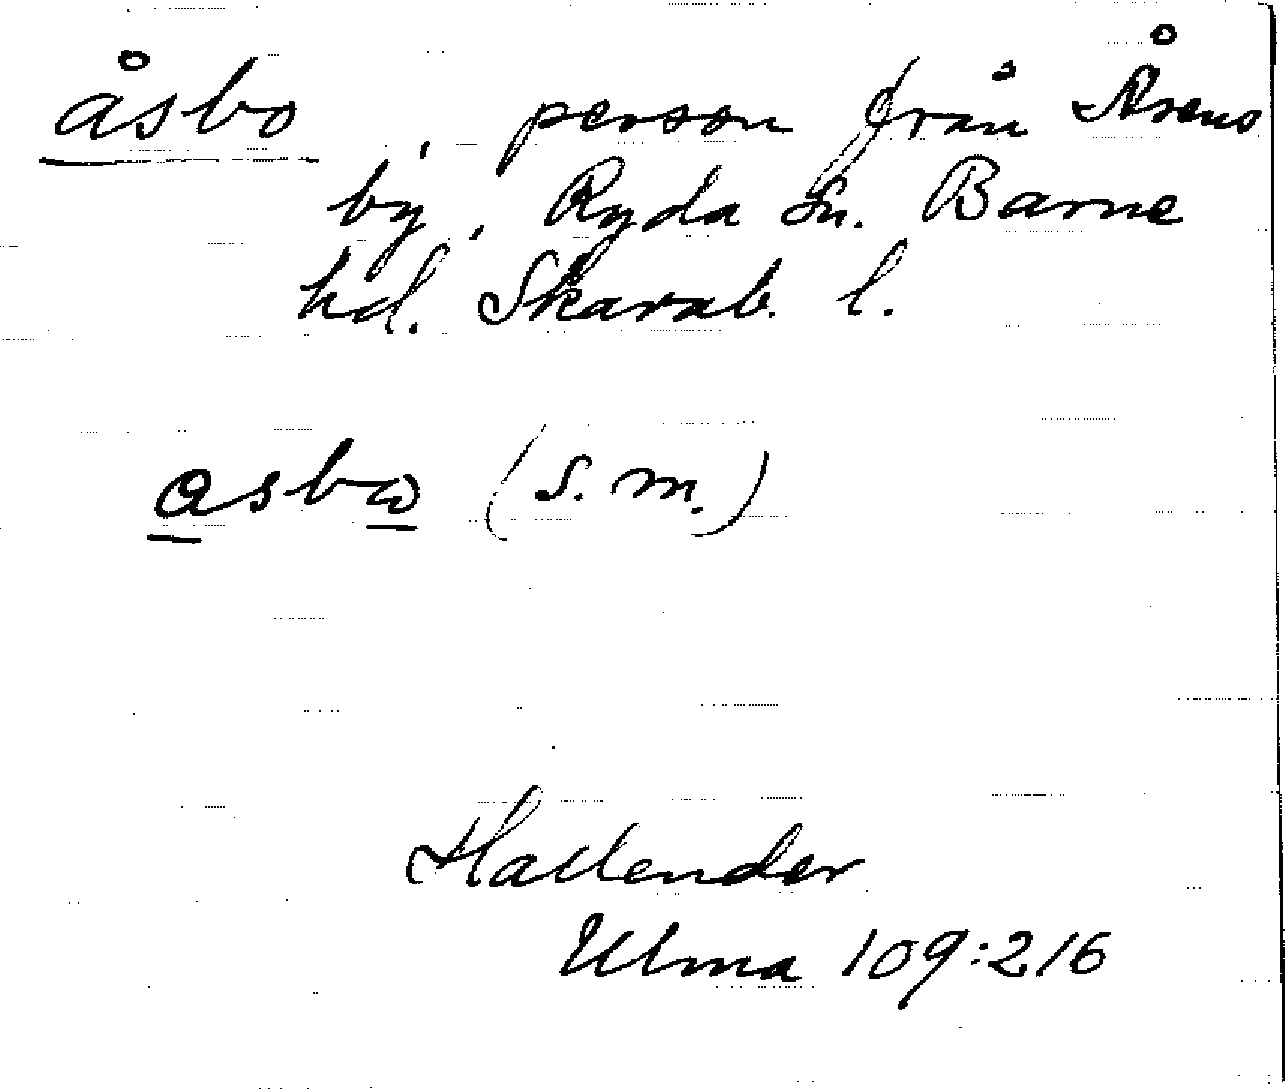 åsbo, person från Åsens
by, Ryda sn. Barne
hd. Skarab. l.
asbω (s. m.)
Hallender
Ulma 109:216